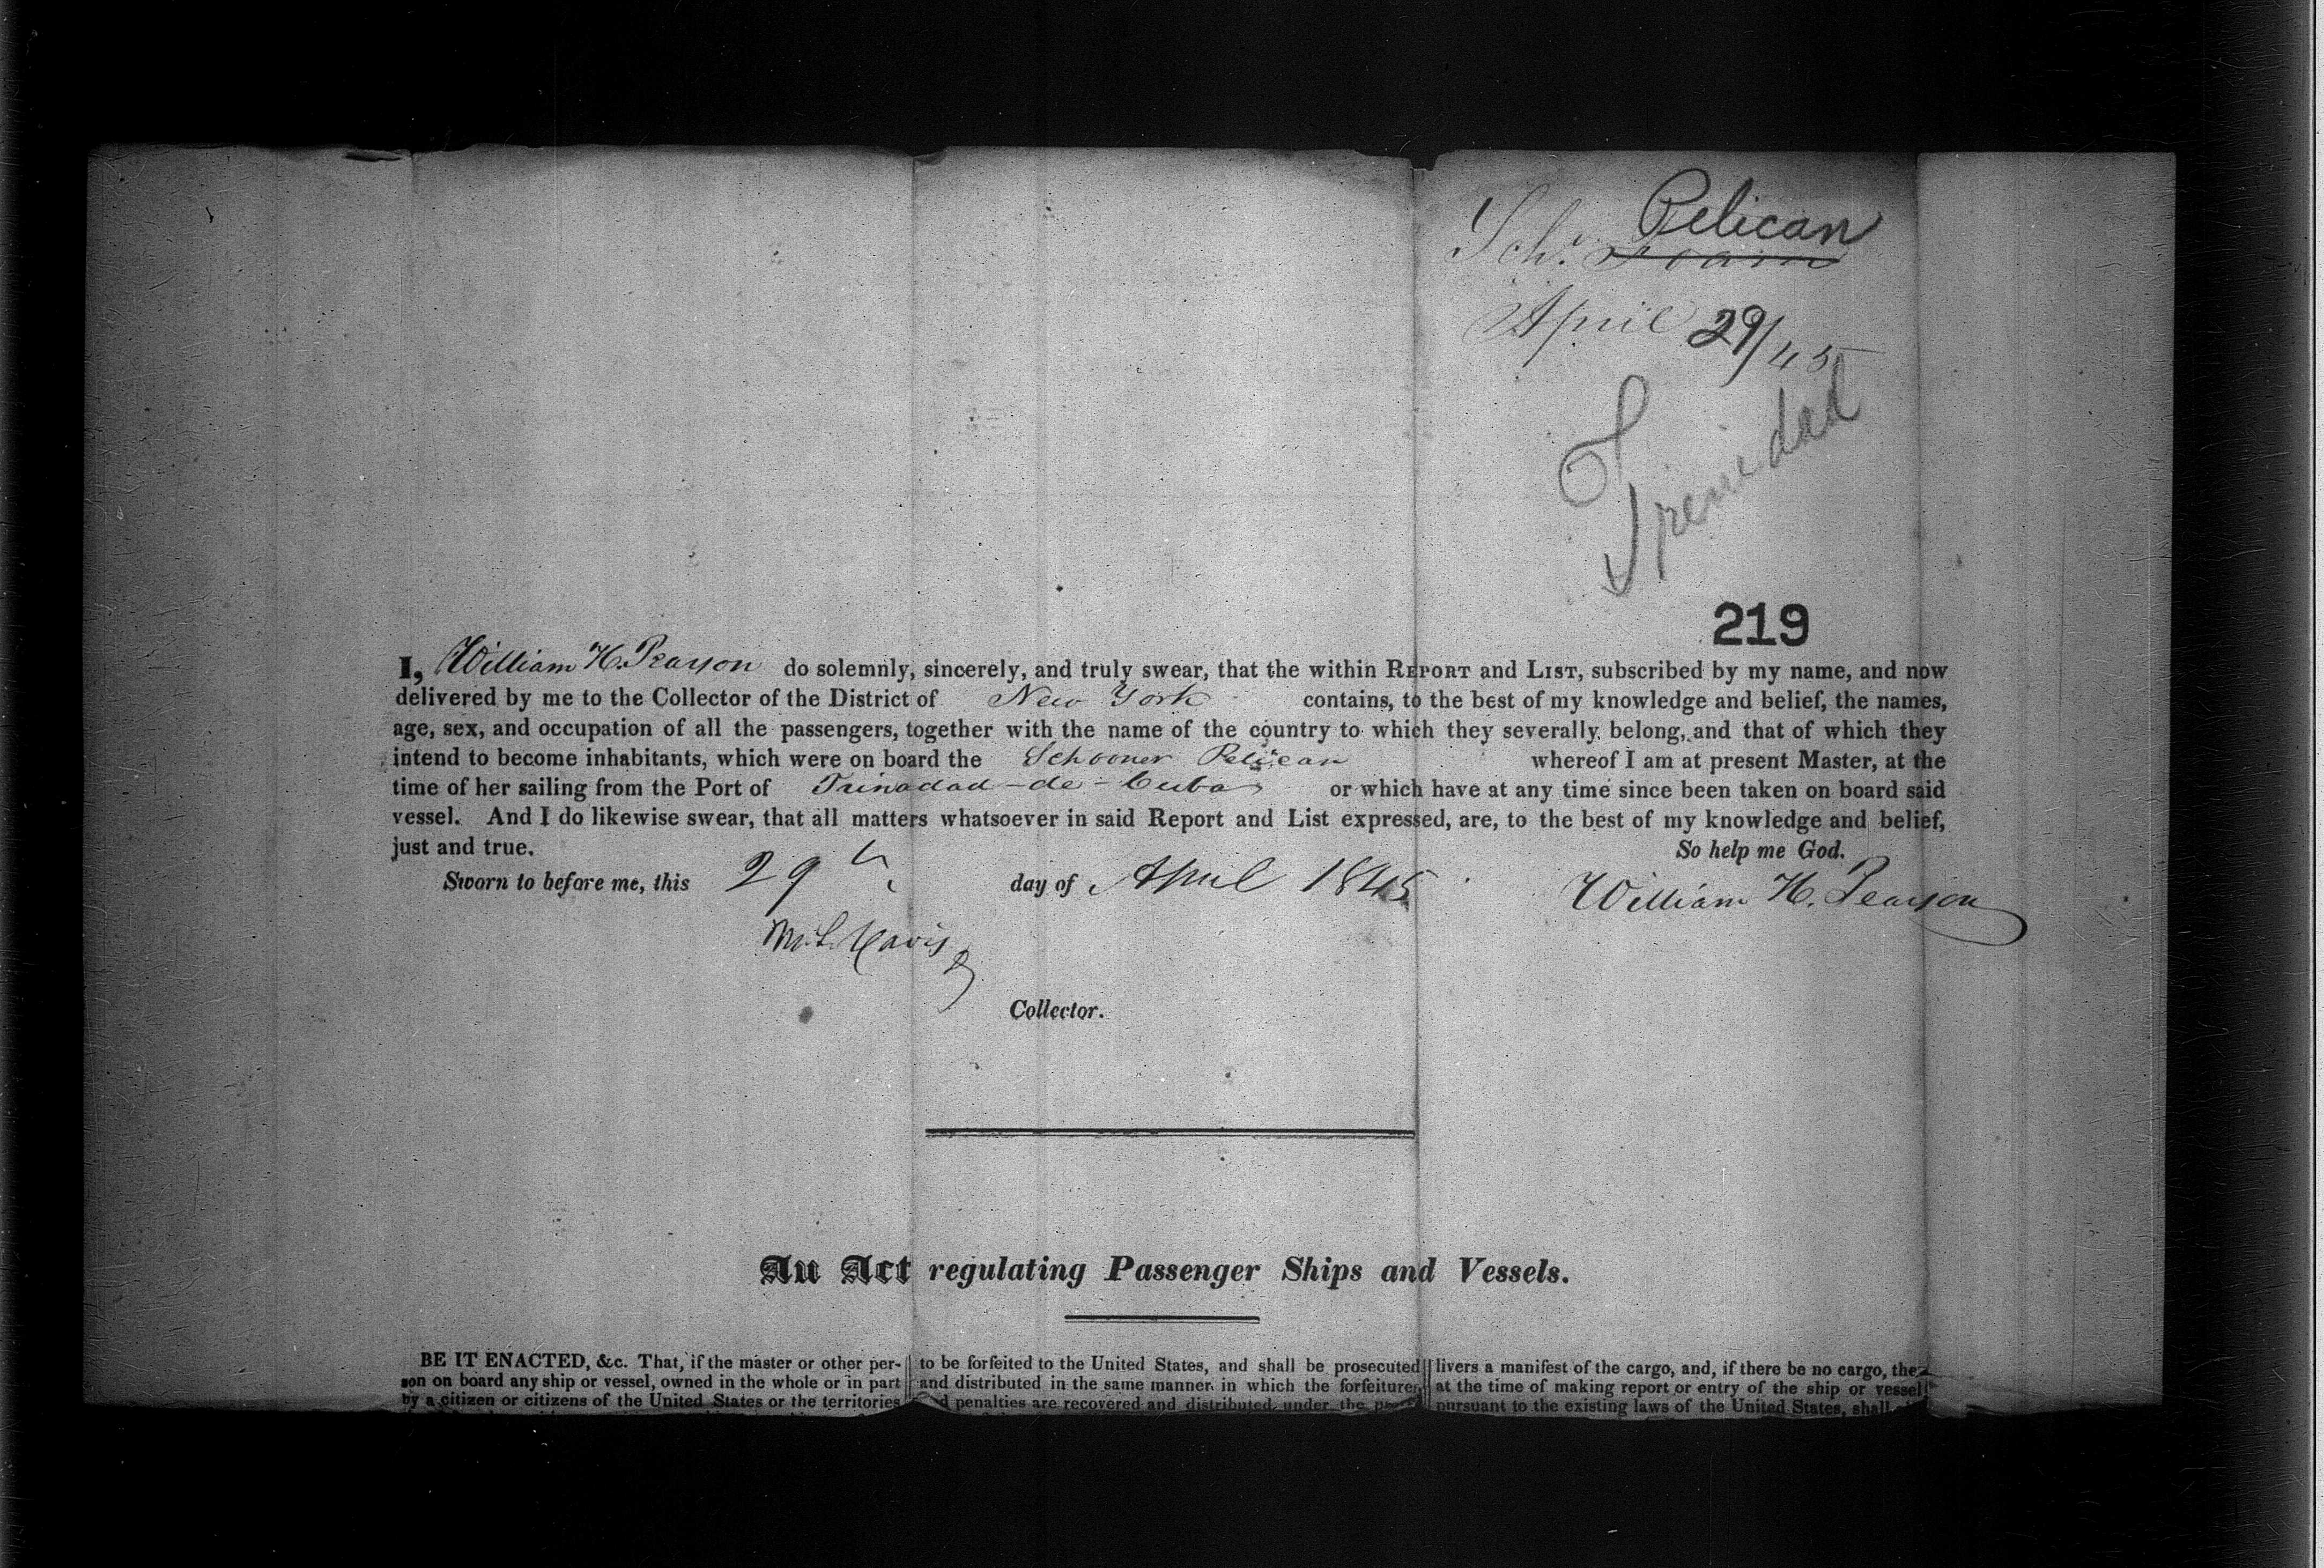 Pelican
Schr. Foam
April 29/45
Trenidad
219
I, William H. Pearson do solemnly, sincerely, and truly swear, that the within REPORT and LIST, subscribed by my name, and now
delivered by me to the Collector of the District of New York contains, to the best of my knowledge and belief, the names,
age, sex, and occupation of all the passengers, together with the name of the country to which they severally belong, and that of which they
intend to become inhabitants, which were on board the Schooner Pelican whereof I am at present Master, at the
time of her sailing from the Port of Trinadad-de-Cuba or which have at any time since been taken on board said
vessel. And I do likewise swear, that all matters whatsoever in said Report and List expressed, are, to the best of my knowledge and belief,
just and true. So help me God.
Sworn to before me, this 29th day of April 1845 William H. Pearson
M. L. Davis
Collector.
An Act regulating Passenger Ships and Vessels.
BE IT ENACTED, &c. That, if the master or other per-
son on board any ship or vessel, owned in the whole or in part
by a citizen or citizens of the United States or the territories
to be forfeited to the United States, and shall be prosecuted
and distributed in the same manner in which the forfeitures
penalties are recovered and distributed under the
livers a manifest of the cargo, and, if there be no cargo, then
at the time of making report or entry of the ship or vessel
pursuant to the existing laws of the United States, shall